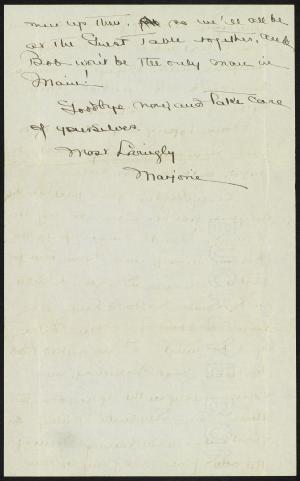 men up then, so we'll all be
at the Guest Table together, and
Bob won't be the only man in
Main!
Goodbye now, and take care
of yourselves
Most Lovingly
Marjorie